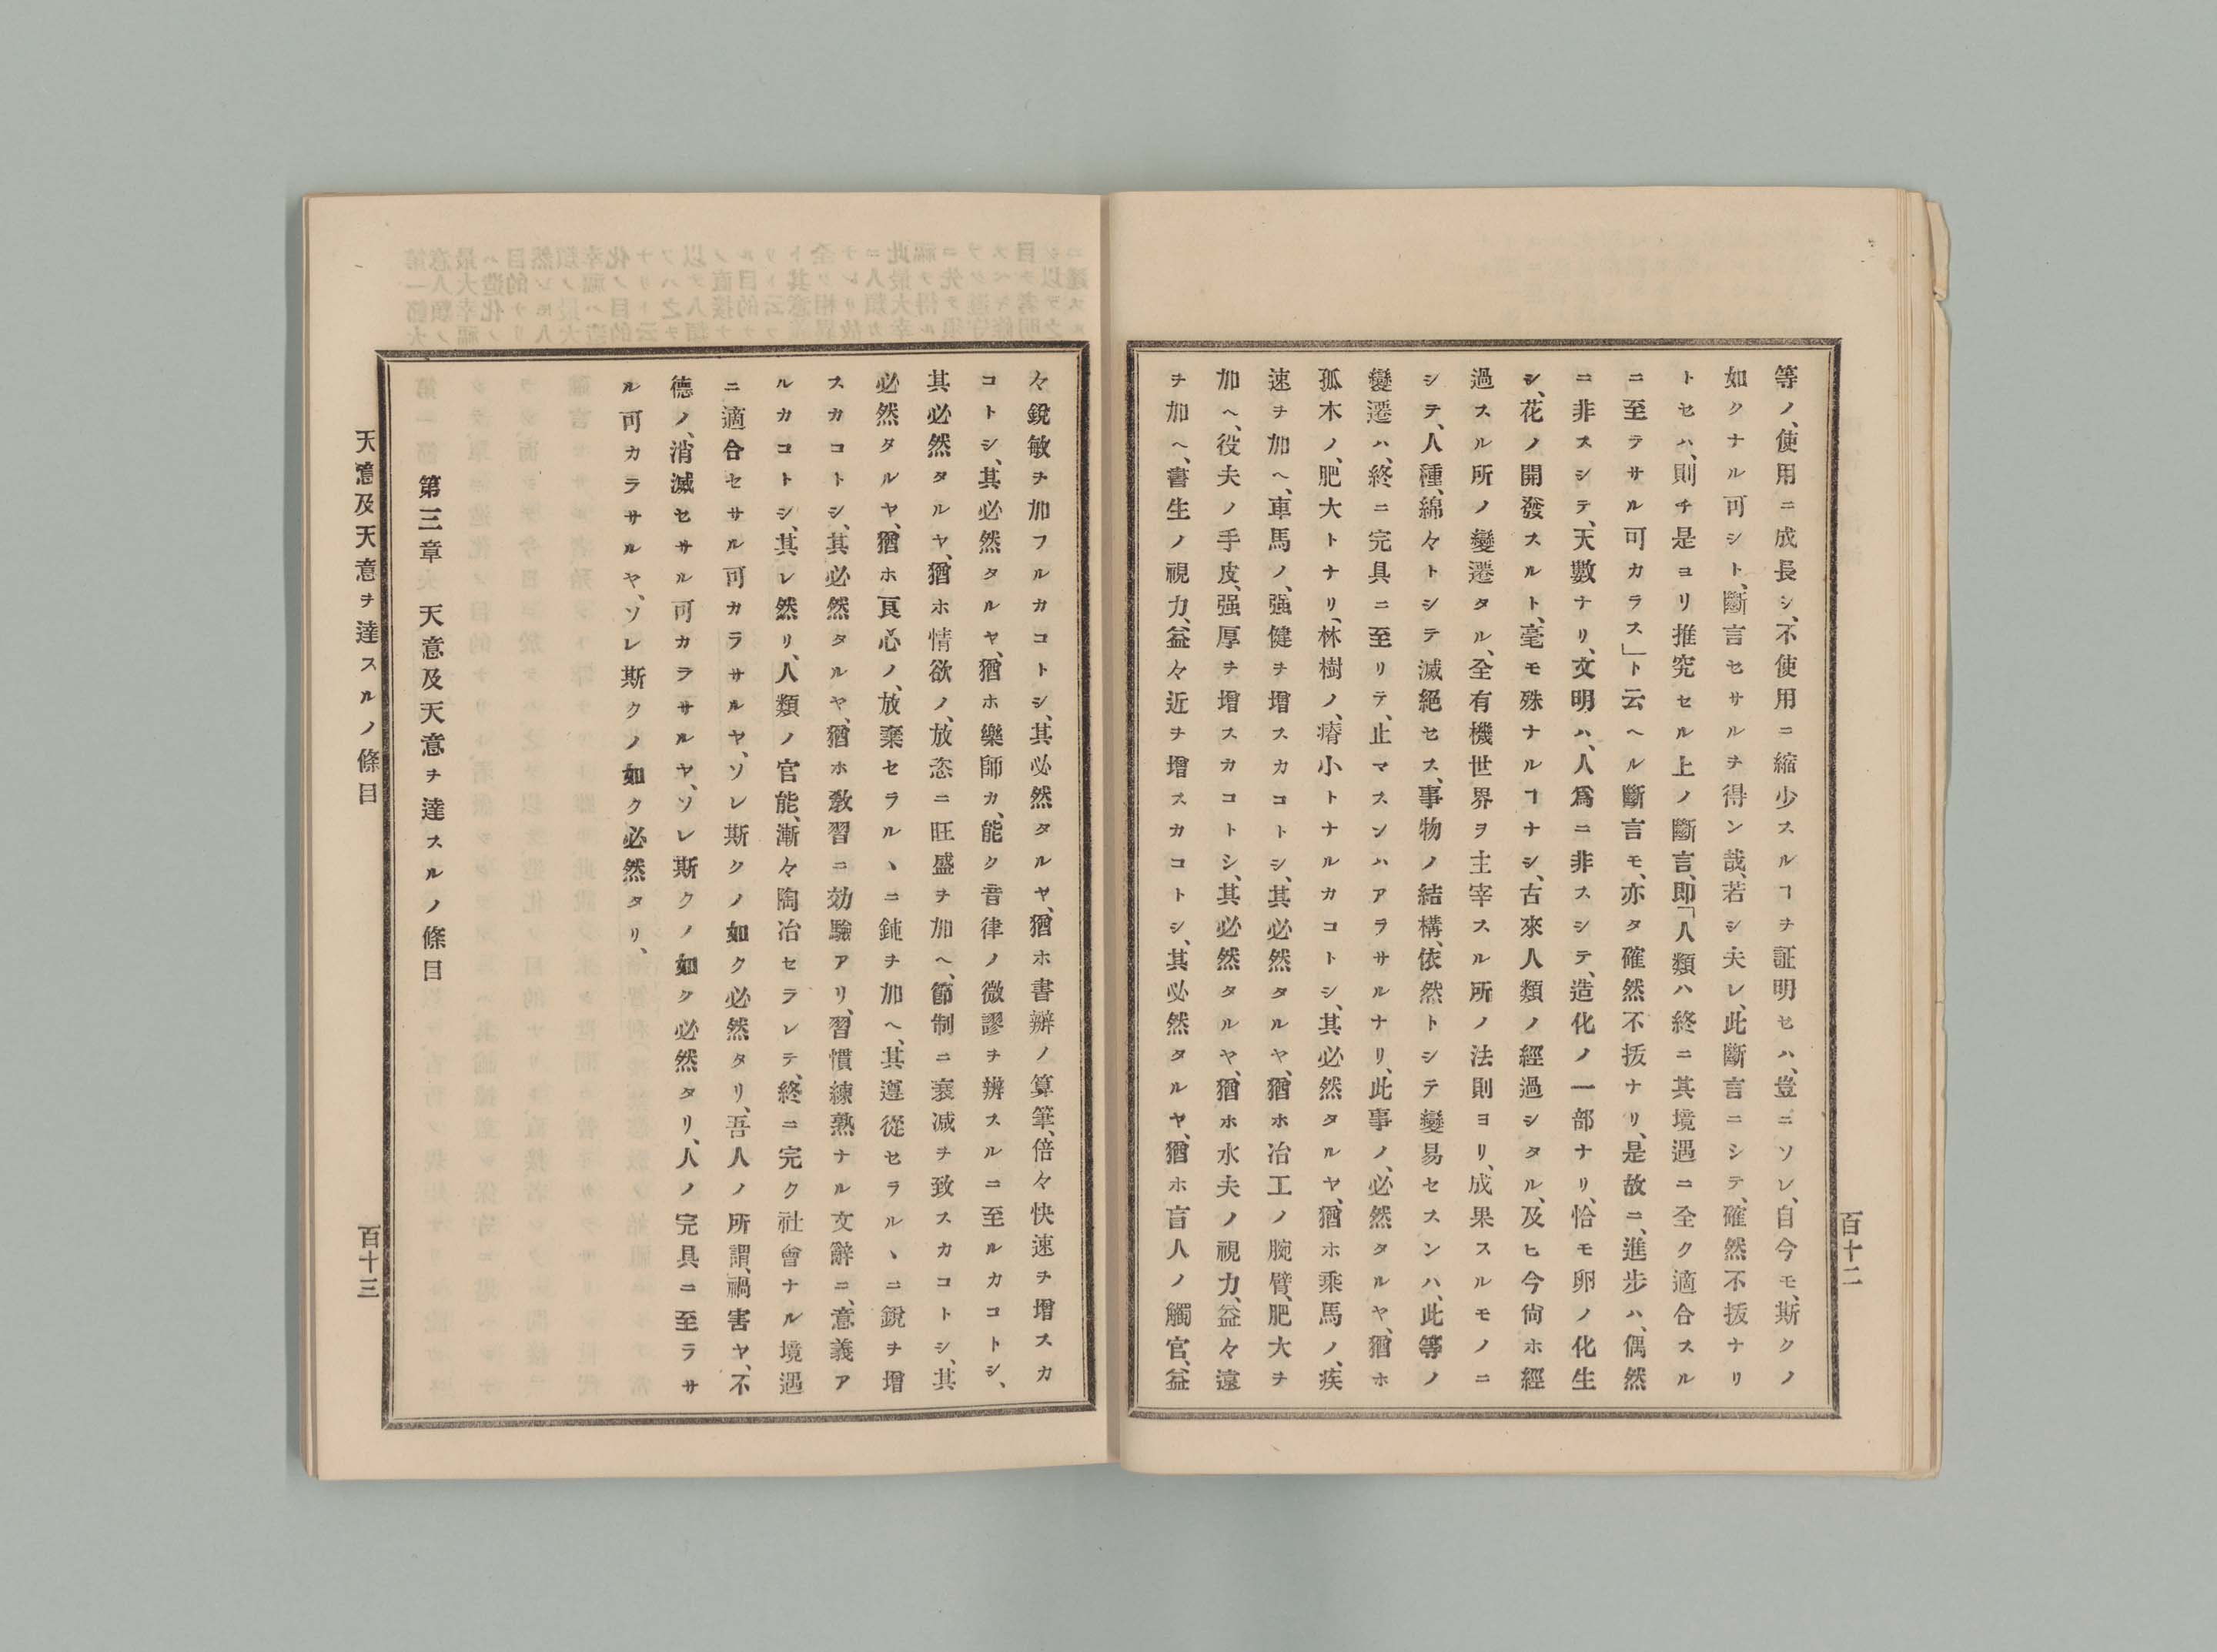 百十二
等ノ、使用ニ成長シ、不使用ニ縮少スルヿヲ証明セハ、豈ニソレ、自今モ、斯クノ
如クナル可シト、斷言セサルヲ得ン哉、若シ夫レ、此斷言ニシテ、確然不拔ナリ
トセハ、則チ是ヨリ推究セル上ノ斷言、即「人類ハ終ニ其境遇ニ全ク適合スル
ニ至ラサル可カラス」ト云ヘル斷言モ、亦タ確然不拔ナリ、是故ニ、進步ハ、偶然
ニ非スシテ、天數ナリ、文明ハ、人爲ニ非スシテ、造化ノ一部ナリ、恰モ卵ノ化生
シ、花ノ開發スルト、毫モ殊ナルヿナシ、古來人類ノ經過シタル、及ヒ今尙ホ經
過スル所ノ變遷タル、全有機世界ヲ主宰スル所ノ法則ヨリ、成果スルモノニ
シテ、人種、綿々トシテ滅絕セス、事物ノ結構、依然トシテ變易セスンハ、此等ノ
變遷ハ、終ニ完具ニ至リテ、止マスンハアラサルナリ、此事ノ、必然タルヤ、猶ホ
孤木ノ、肥大トナリ、林樹ノ、瘠小トナルカコトシ、其必然タルヤ、猶ホ乘馬ノ、疾
速ヲ加ヘ、車馬ノ、强健ヲ增スカコトシ、其必然タルヤ、猶ホ冶工ノ腕臂、肥大ヲ
加ヘ、役夫ノ手皮、强厚ヲ增スカコトシ、其必然タルヤ、猶ホ水夫ノ視力、益々遠
ヲ加ヘ、書生ノ視力、益々近ヲ增スカコトシ、其必然タルヤ、猶ホ盲人ノ觸官、益
々銳敏ヲ加フルカコトシ、其必然タルヤ、猶ホ書辦ノ算筆、倍々快速ヲ增スカ
コトシ、其必然タルヤ、猶ホ樂師カ、能ク音律ノ微謬ヲ辨スルニ至ルカコトシ、
其必然タルヤ、猶ホ情欲ノ、放恣ニ旺盛ヲ加ヘ、節制ニ衰减ヲ致スカコトシ、其
必然タルヤ、猶ホ良心ノ、放棄セラルヽニ鈍ヲ加ヘ、其遵從セラルヽニ銳ヲ增
スカコトシ、其必然タルヤ、猶ホ敎習ニ効驗アリ、習慣練熟ナル文辭ニ、意義ア
ルカコトシ、其レ然リ、人類ノ官能、漸々陶冶セラレテ、終ニ完ク社會ナル境遇
ニ適合セサル可カラサルヤ、ソレ斯クノ如ク必然タリ、吾人ノ所謂、禍害ヤ、不
德ノ、消滅セサル可カラサルヤ、ソレ斯クノ如ク必然タリ、人ノ完具ニ至ラサ
ル可カラサルヤ、ソレ斯クノ如ク必然タリ、
第三章 天意及天意ヲ達スルノ條目
天意及天意ヲ達スルノ條目
百十三